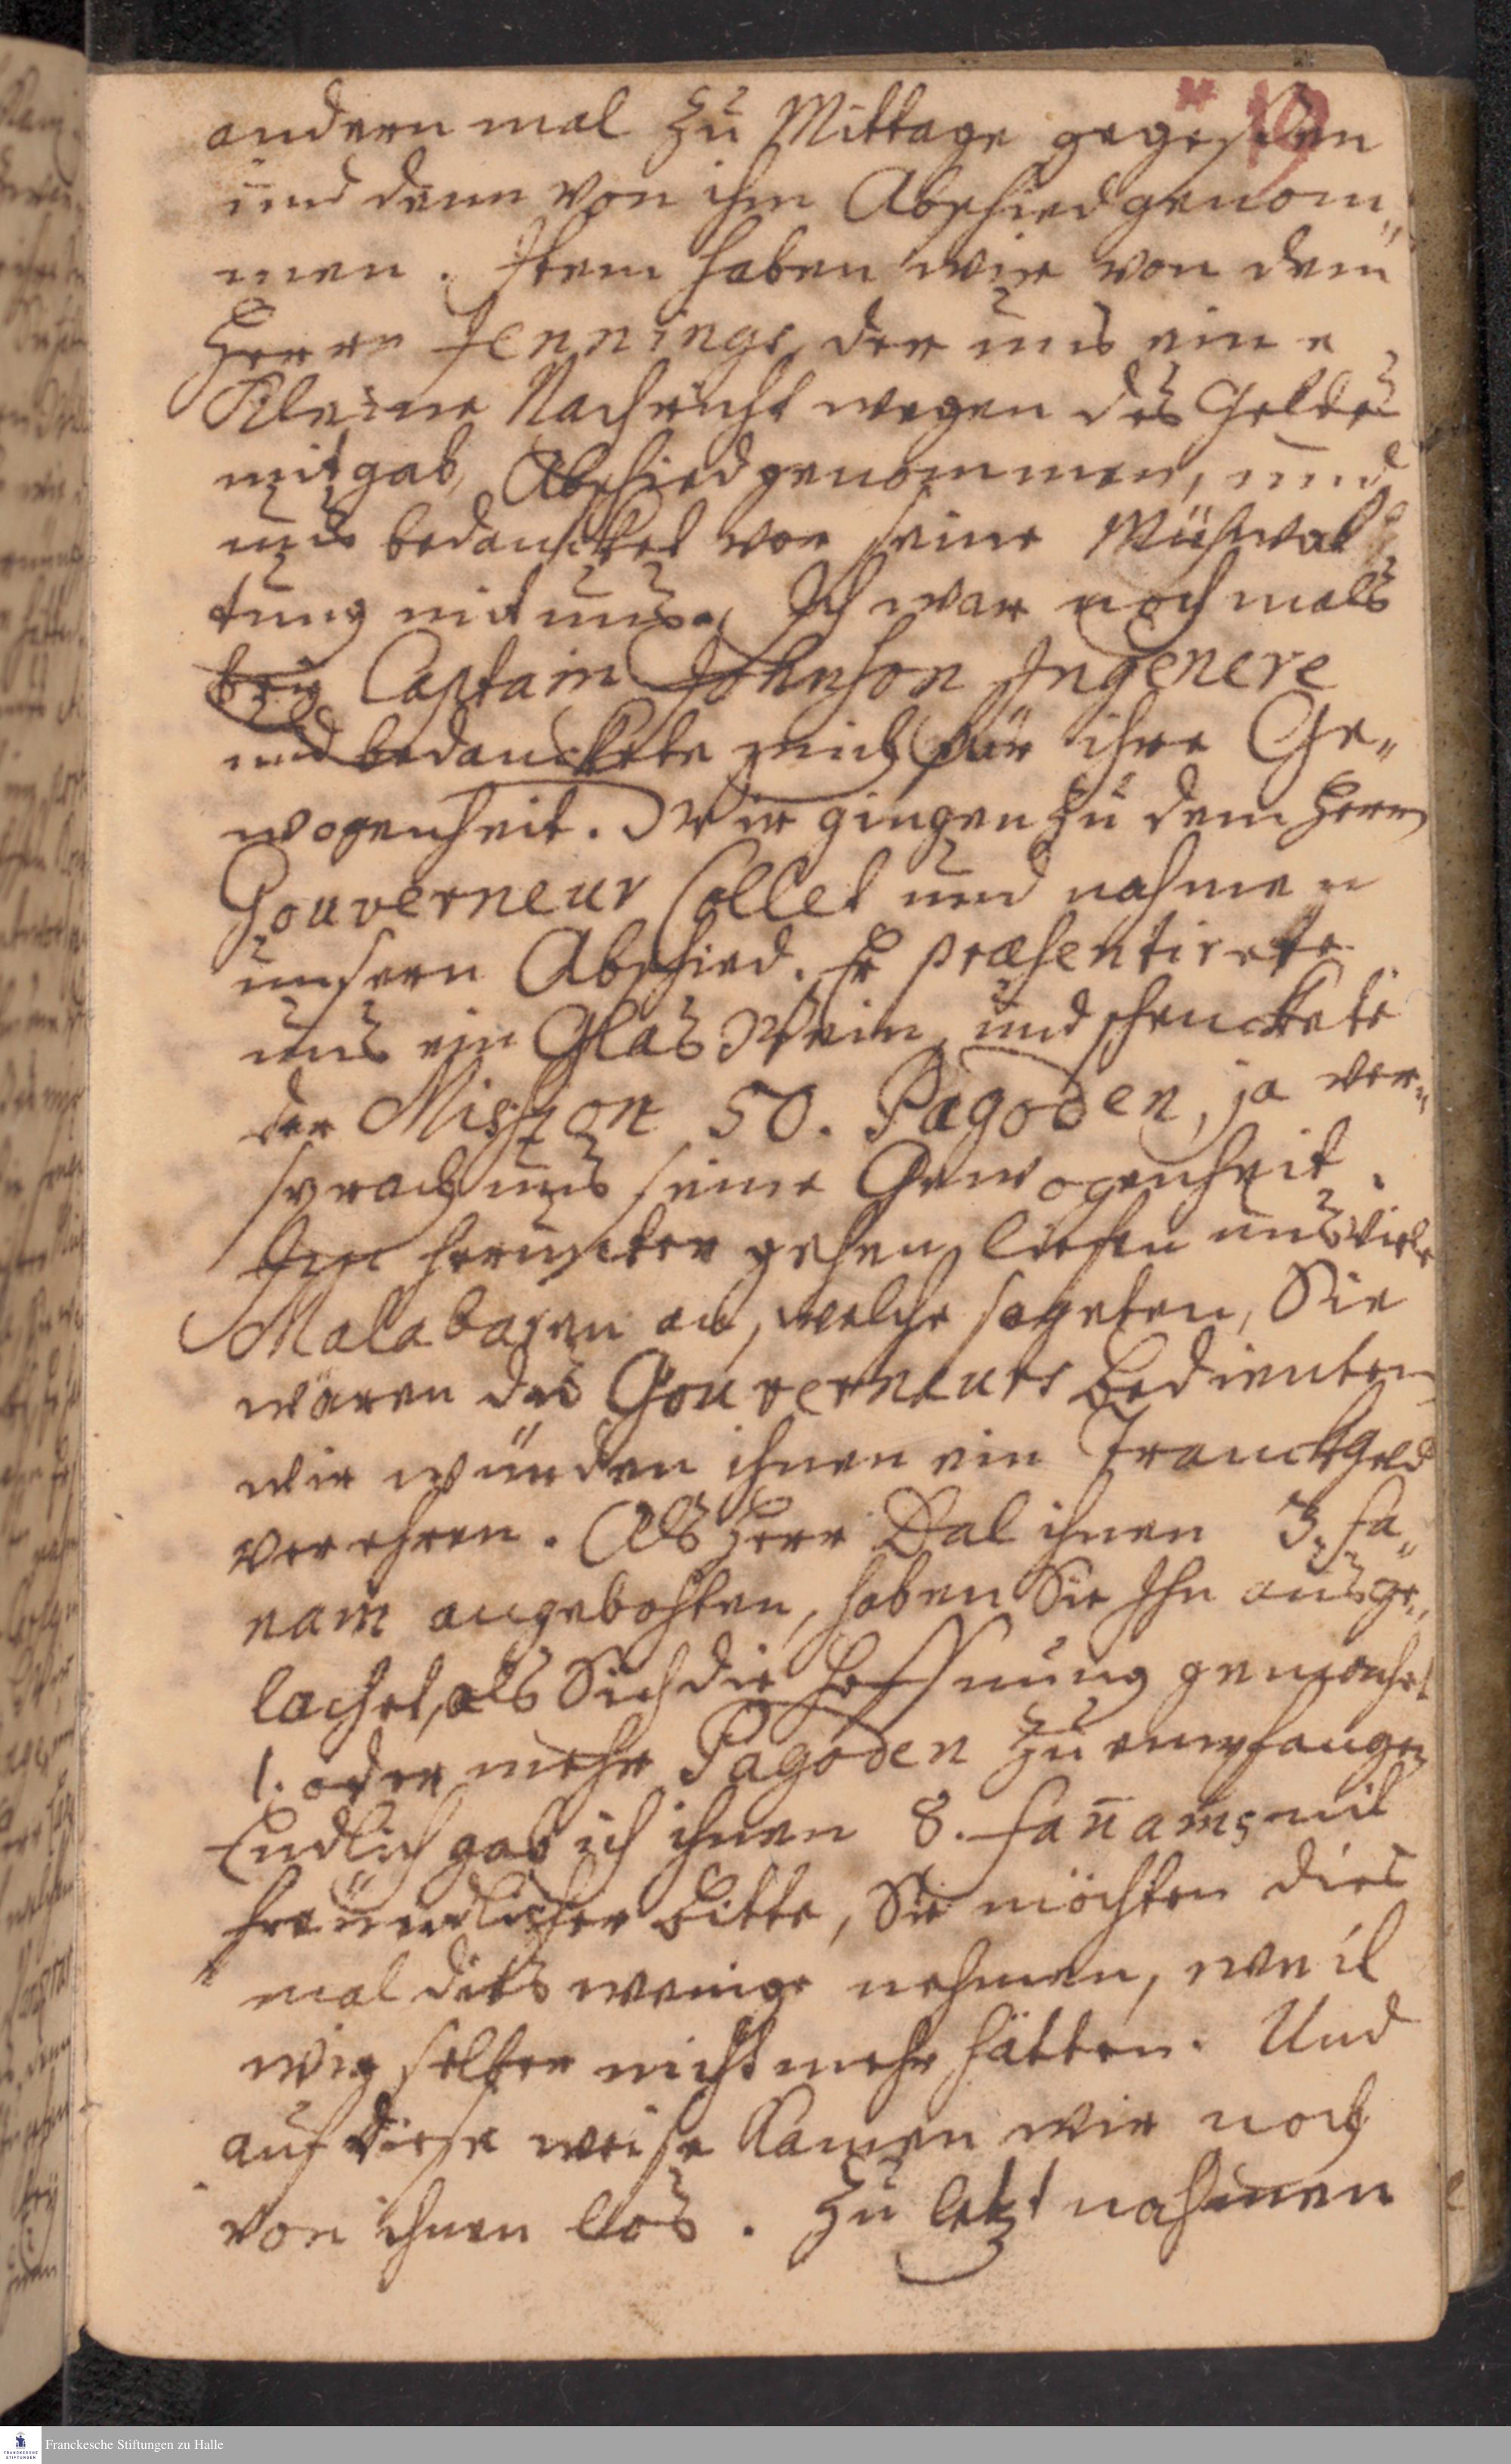 19
andern mal zu Mittage gegeßen
und denn von ihm Abschied genom„
men. Item haben wir von dem
Herrn Jennings, der uns eine
Kleine Nachricht wegen des Geldes
mitgab, Abschied genommen, und
uns bedancket vor seine Mühwal
tung mit uns. Ich war nochmals
bey Captain Johnson Ingenere
und bedanckete mich für ihre Ge„
wogenheit. Wir gingen zu dem Herrn
Gouverneur Collet und nahmen
unsern Abschied. Er præsentirete
uns ein Glas Wein, und schenckete
der Mission 50. Pagoden, ja ver„
sprach uns seine Gewogenheit.
Im herunter gehen, liefen uns viele
Malabaren an, welche sageten, Sie
wären des Gouverneurs Bedienten
wir würden ihnen ein Tranckgeld
verehren. Als Herr Dal ihnen 3. fa„
nam angebohten, haben Sie Ihn ausge„
lachet, als Sich die Hoffnung gemachet
1. oder mehr Pagoden zu empfangen
Endlich gab ich ihnen 8. fanams mit
freündlicher Bitte, Sie möchten dies
mal dies wenige nehmen, weil
wir selber nicht mehr hätten. Und
auf diese weise Kamen wir noch
von ihnen los. Zu letzt nahmen
Franckesche Stiftungen zu Halle